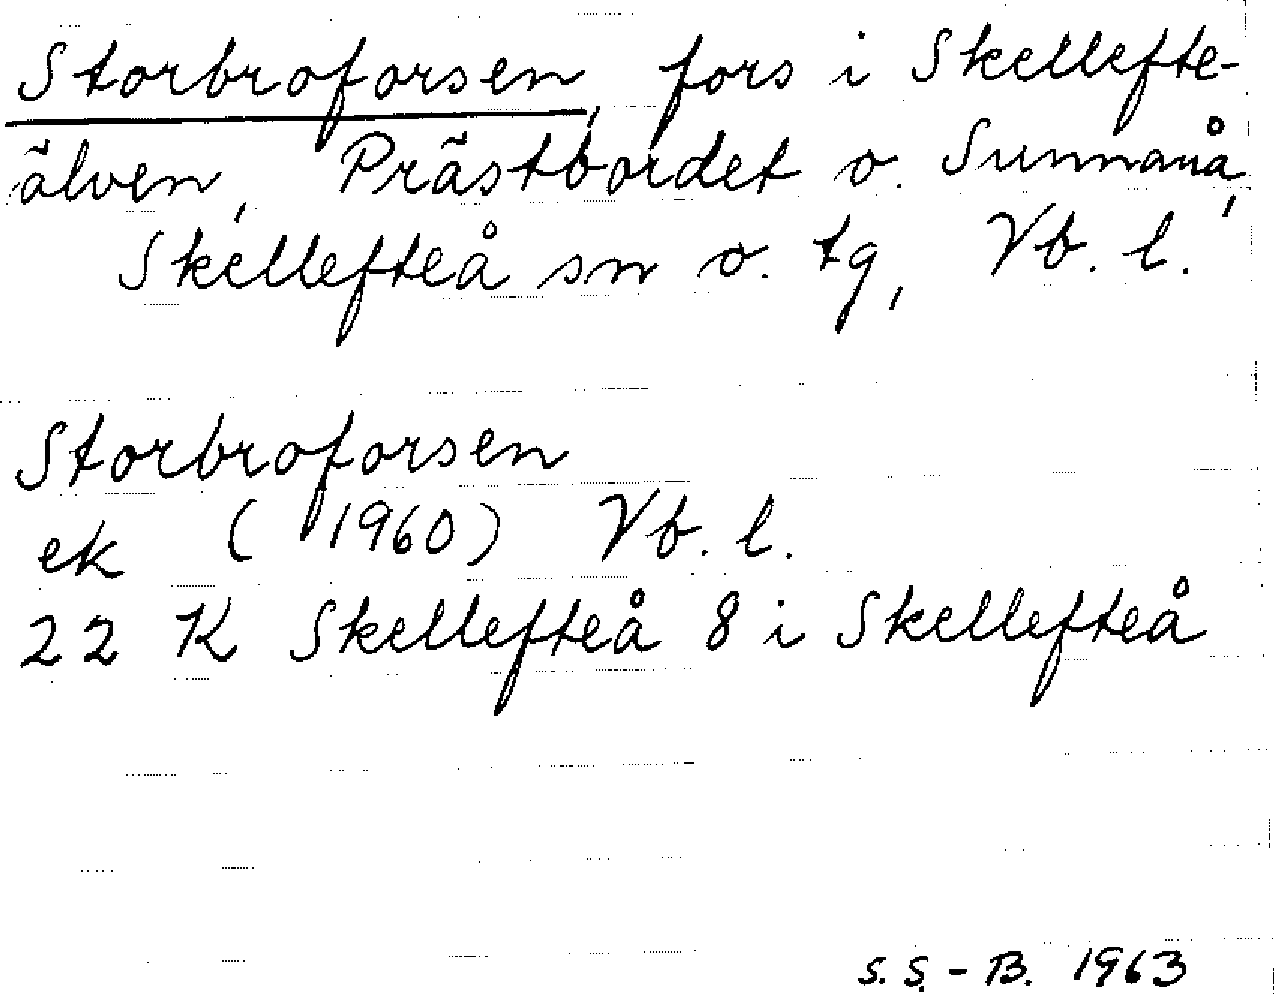 Storbroforsen, fors i Skellefte-
älven, Prästbordet o. Sunnanå,
Skellefteå sn o. tg, Vb. l.
Storbroforsen
ek (1960) Vb. l.
22 K Skellefteå 8 i Skellefteå
S. S. - B. 1963